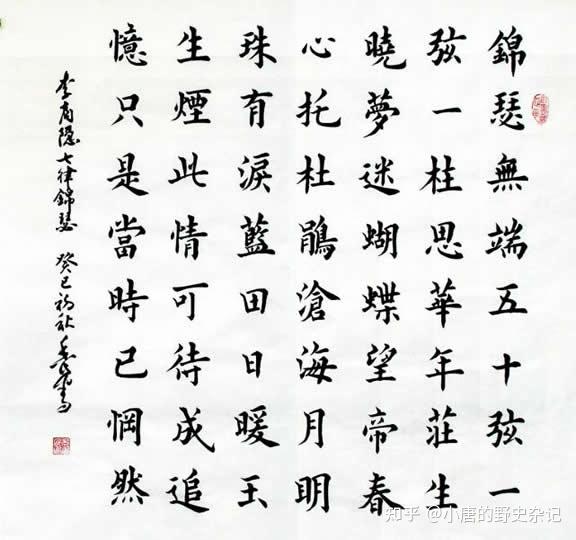 錦瑟無端五十弦一
弦一柱思華年莊生
曉夢迷蝴蝶望帝春
心托杜鵑滄海月明
珠有淚藍田日暖玉
生煙此情可待成追
憶只是當時已惘然
李商隐七律錦瑟 癸巳初秋
知乎 @小唐的野史杂记